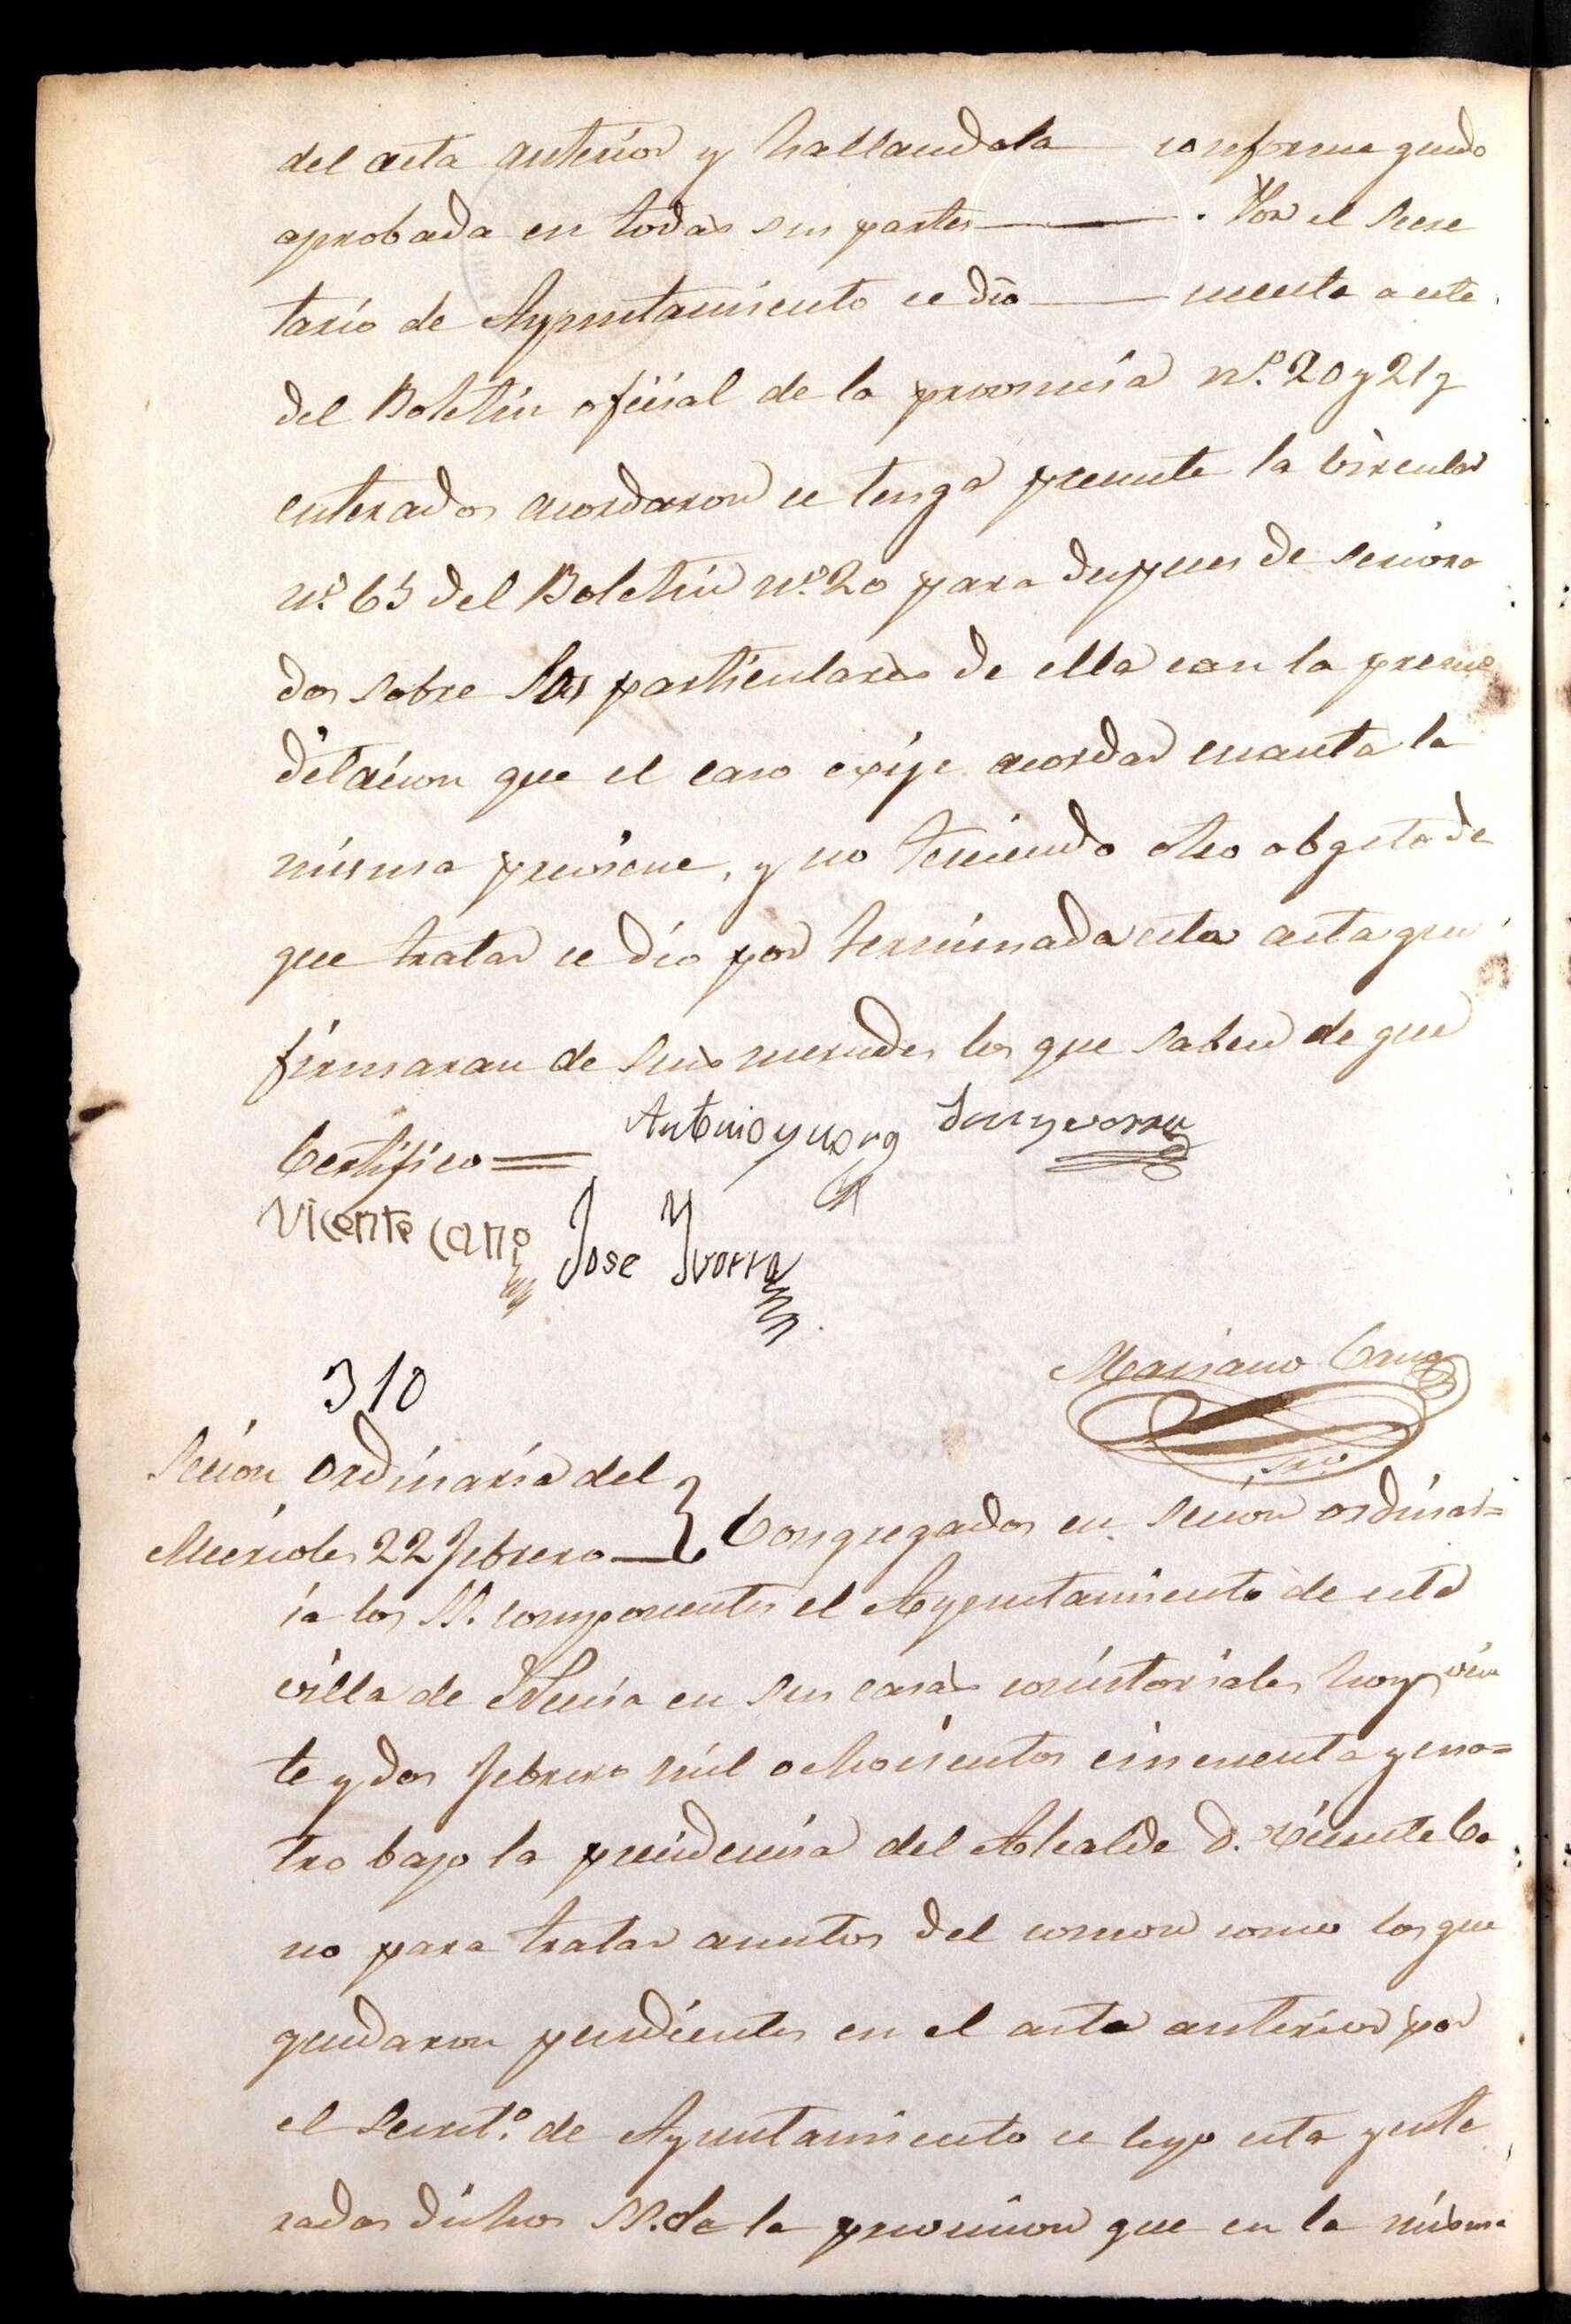 del acta anterior y hallandola conforme quedo
aprobada en todas sus partes. Por el Secre
tario de Ayuntamiento se dio cuenta a este
del Boletin oficial de la provincia nº. 20 y 21 y
enterados acordaron se tenga presente la Circular
nº 65 del Boletin nº 20 para despues de serciora
dos sobre los particulares de ella con la preme
ditacion que el caso exije acordar cuanto la
misma previene, y no teniendo otro obgeto de
que tratar se dio por terminada esta acta que
firmaran de sus mercedes los que saben de que
Certifico =
Antonio
Vicente Cano Jose Yvorra
Mariano Cano
Srio
310
Secion ordinaria del
Miercoles 22 Febrero
Congregados en secion ordinar=
ia los SS. componentes el Ayuntamiento de esta
villa de Nucia en sus casas consistoriales hoy vein
te y dos Febrero mil ochocientos cincuenta y cua=
tro bajo la presidencia del Alcalde D. Vicente Ca
no para tratar asuntos del comun como los que
quedaron pendientes en el acta anterior por
el Secret.º de Ayuntamiento se leyo esta y ente
rados dichos SS. de la prevencion que en la misma